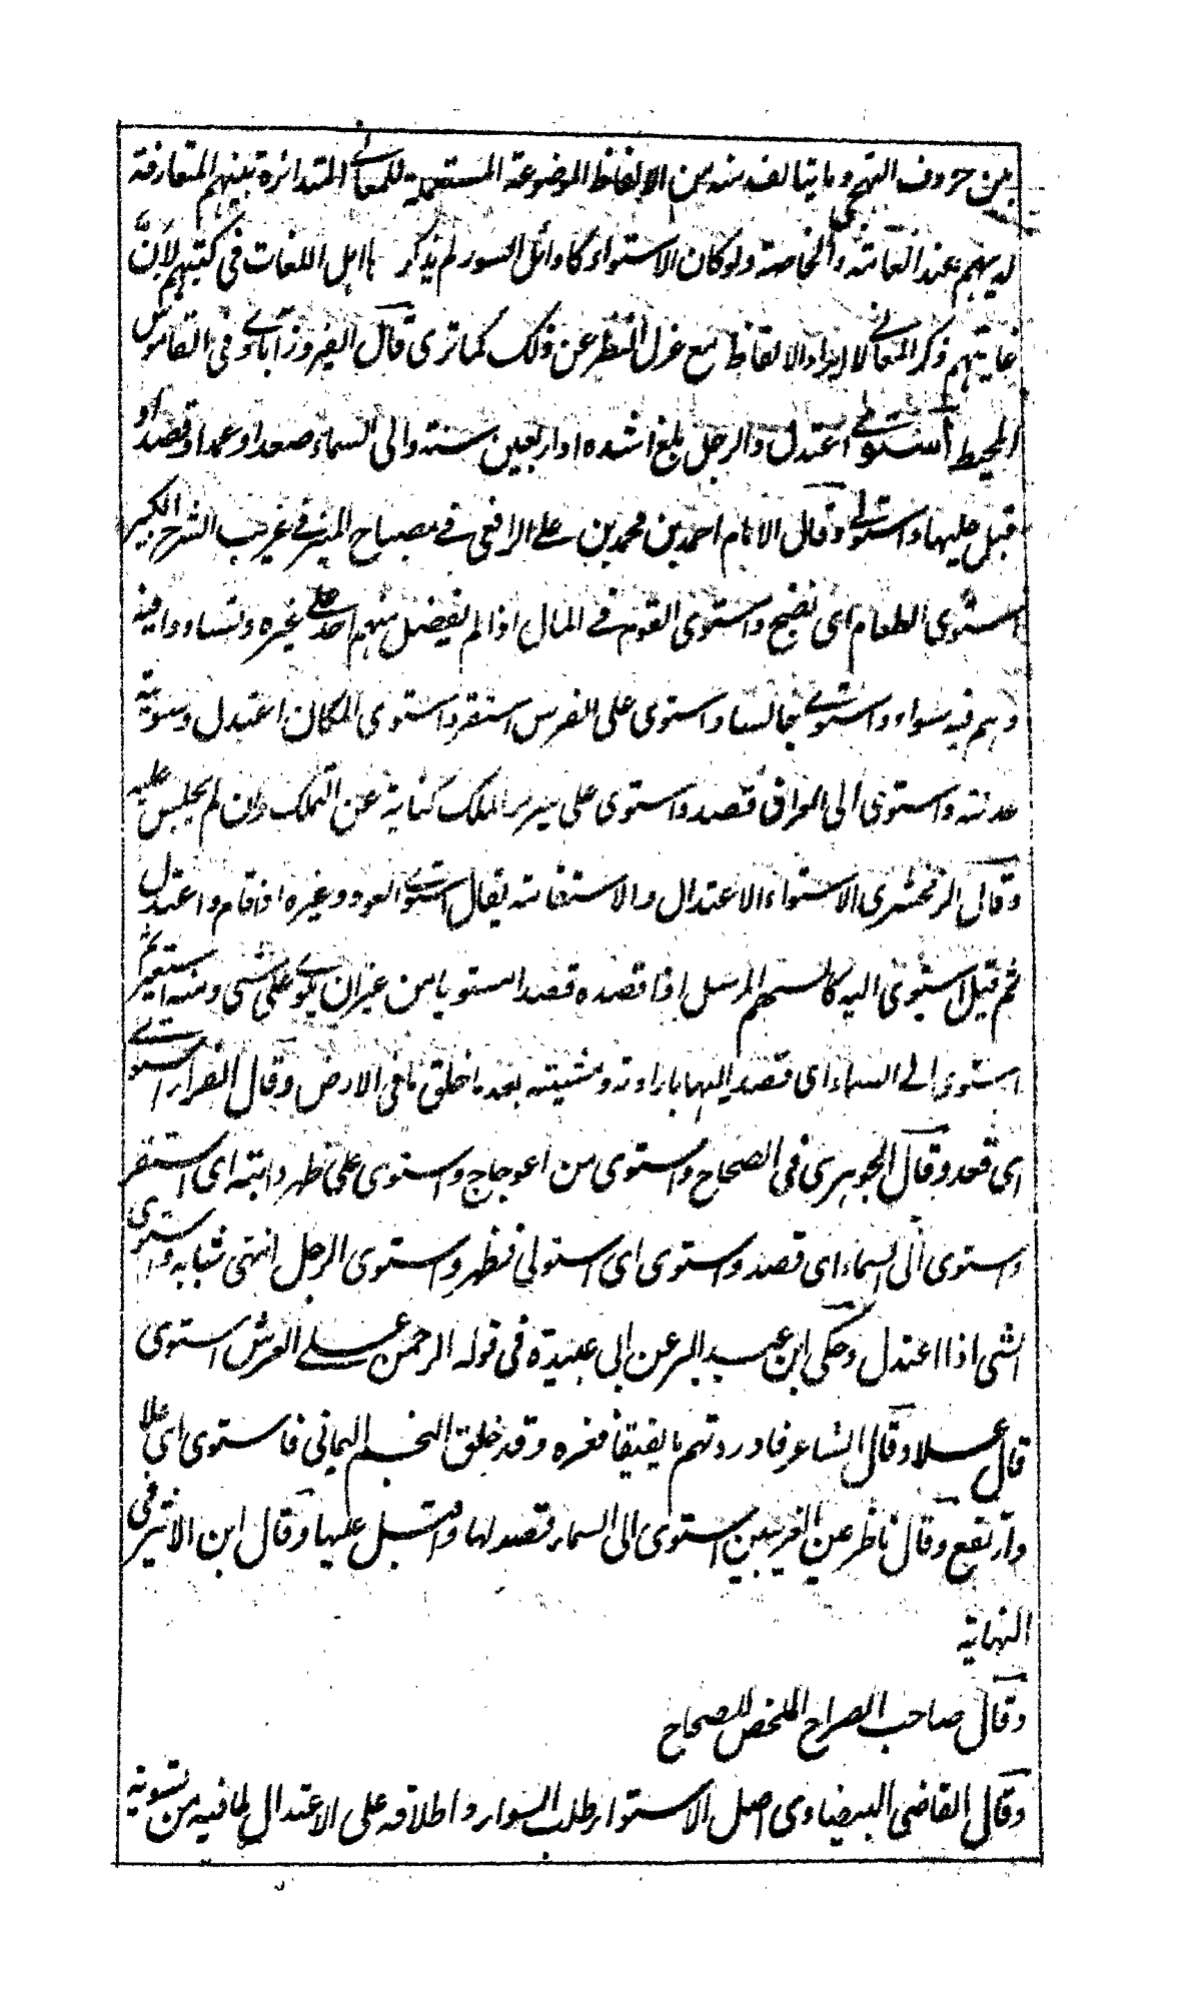 من حروف التهجى وما يتالف منه من الالفاظ الموضوعة المستعملة للمعانے المتدائرة بينهم المتعارفة
لديهم عند العامته والخاصة ولو كان الاستواء كاوائل السور لم يذكر ها اهل اللغات فى كتبهم لانّ
غايتهم ذكر المعانے لا ايراد الالفاظ مع عزل النظر عن ذلك كما ترى قال الفيروزآبادے فى القاموس
المحيط استوے اعتدل والرجل بلغ اشده او اربعين سنة والى السماء صعد او عمد او قصد او
قبل عليها واستولے وقال الامام احمد بن محمد بن علے الرافعى فے مصباح المنير فے غريب الشرح الكبير
استوى الطعام اى نضج واستوى القوم فے المال اذا لم يفضل منهم احد علے غيره وتساووا فيه
وهم فيه سواء واستوے جالسا واستوى على الفرس استقر واستوى المكان اعتدل وسويته
عدلته واستوى الى العراق قصد واستوى على سرير الملك كناية عن التملك وان لم يجلس عليه
وقال الزمخشرى الاستواء الاعتدال والاستقامته يقال استوے العود وغيره اذا قام واعتدل
ثم قيل استوى اليه كالسهم المرسل اذا قصده قصدا مستويا من غير ان يلوے على شى ومنه استعير ثم
استوى الے السماء اى قصد اليها بارادته ومشيته بعد ما خلق ما فى الارض وقال الفراء استوے
اى قعد وقال الجوهرى فى الصحاح واستوى من اعوجاج واستوى على ظهر دابته اى استقر
واستوى الى السماء اى قصد واستوى اى استولى وظهر واستوى الرجل انتهى شبابه واستوى
الشى اذا اعتدل وحكى ابن عبد البر عن ابى عبيدة فى قوله الرحمن علے العرش استوى
قال علا وقال الشاعر فاوردتهم ما بفيفا قفره وقد خلق النجم اليمانى فاستوى اى علا
وارتفع وقال ناظر عين الغريبين استوى الى السماء قصد لها واقبل عليها وقال ابن الاثير فى
النهاية
وقال صاحب الصراح الملخص للصحاح
وقال القاضى البيضاوى اصل الاستواء طلب السواء واطلاقه على الاعتدال لما فيه من تسوية